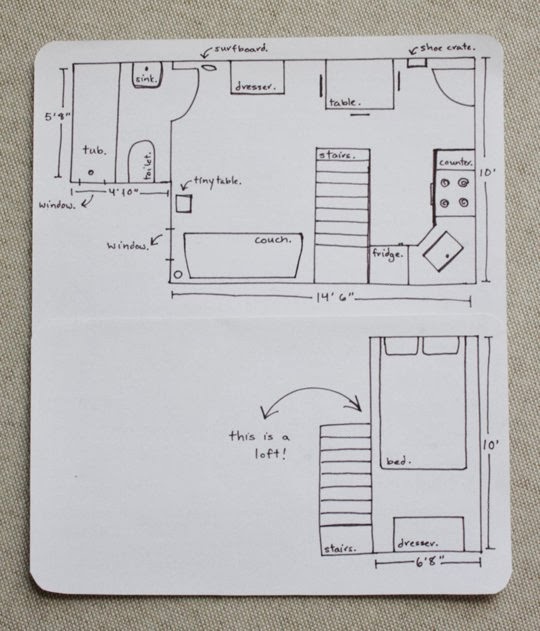 surfboard.
shoe crate.
sink.
dresser.
table.
5'8"
tub.
toilet.
stairs.
counter.
10'
4'10"
tiny table.
window.
window.
couch.
fridge.
14' 6"
this is a
loft!
bed.
10'
stairs.
dresser.
6'8"